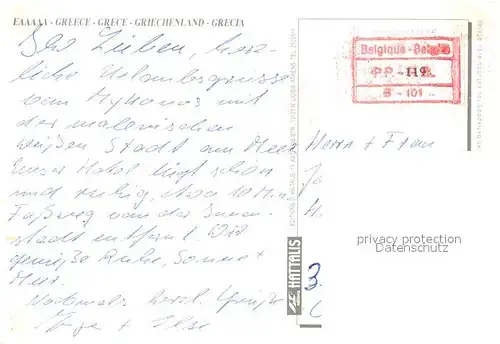 ΕΛΛΑΔΑ - GREECE - GRECE - GRIECHENLAND - GRECIA
Ihr Lieben, herz-
liche Urlaubsgrüsse
von Mykonos mit
der malerischen
weißen Stadt am Meer
Unser Hotel liegt schön
und ruhig, etwa 10 Min.
Fußweg von der Innen-
stadt entfernt. Wir
genießen Ruhe, Sonne +
Meer.
Nochmals herzl. Grüße
+ Ilse
Belgique - België
P.P. - 119
B - 101
HAITALIS
Herrn + Frau
privacy protection
VDMedien24.de
3.